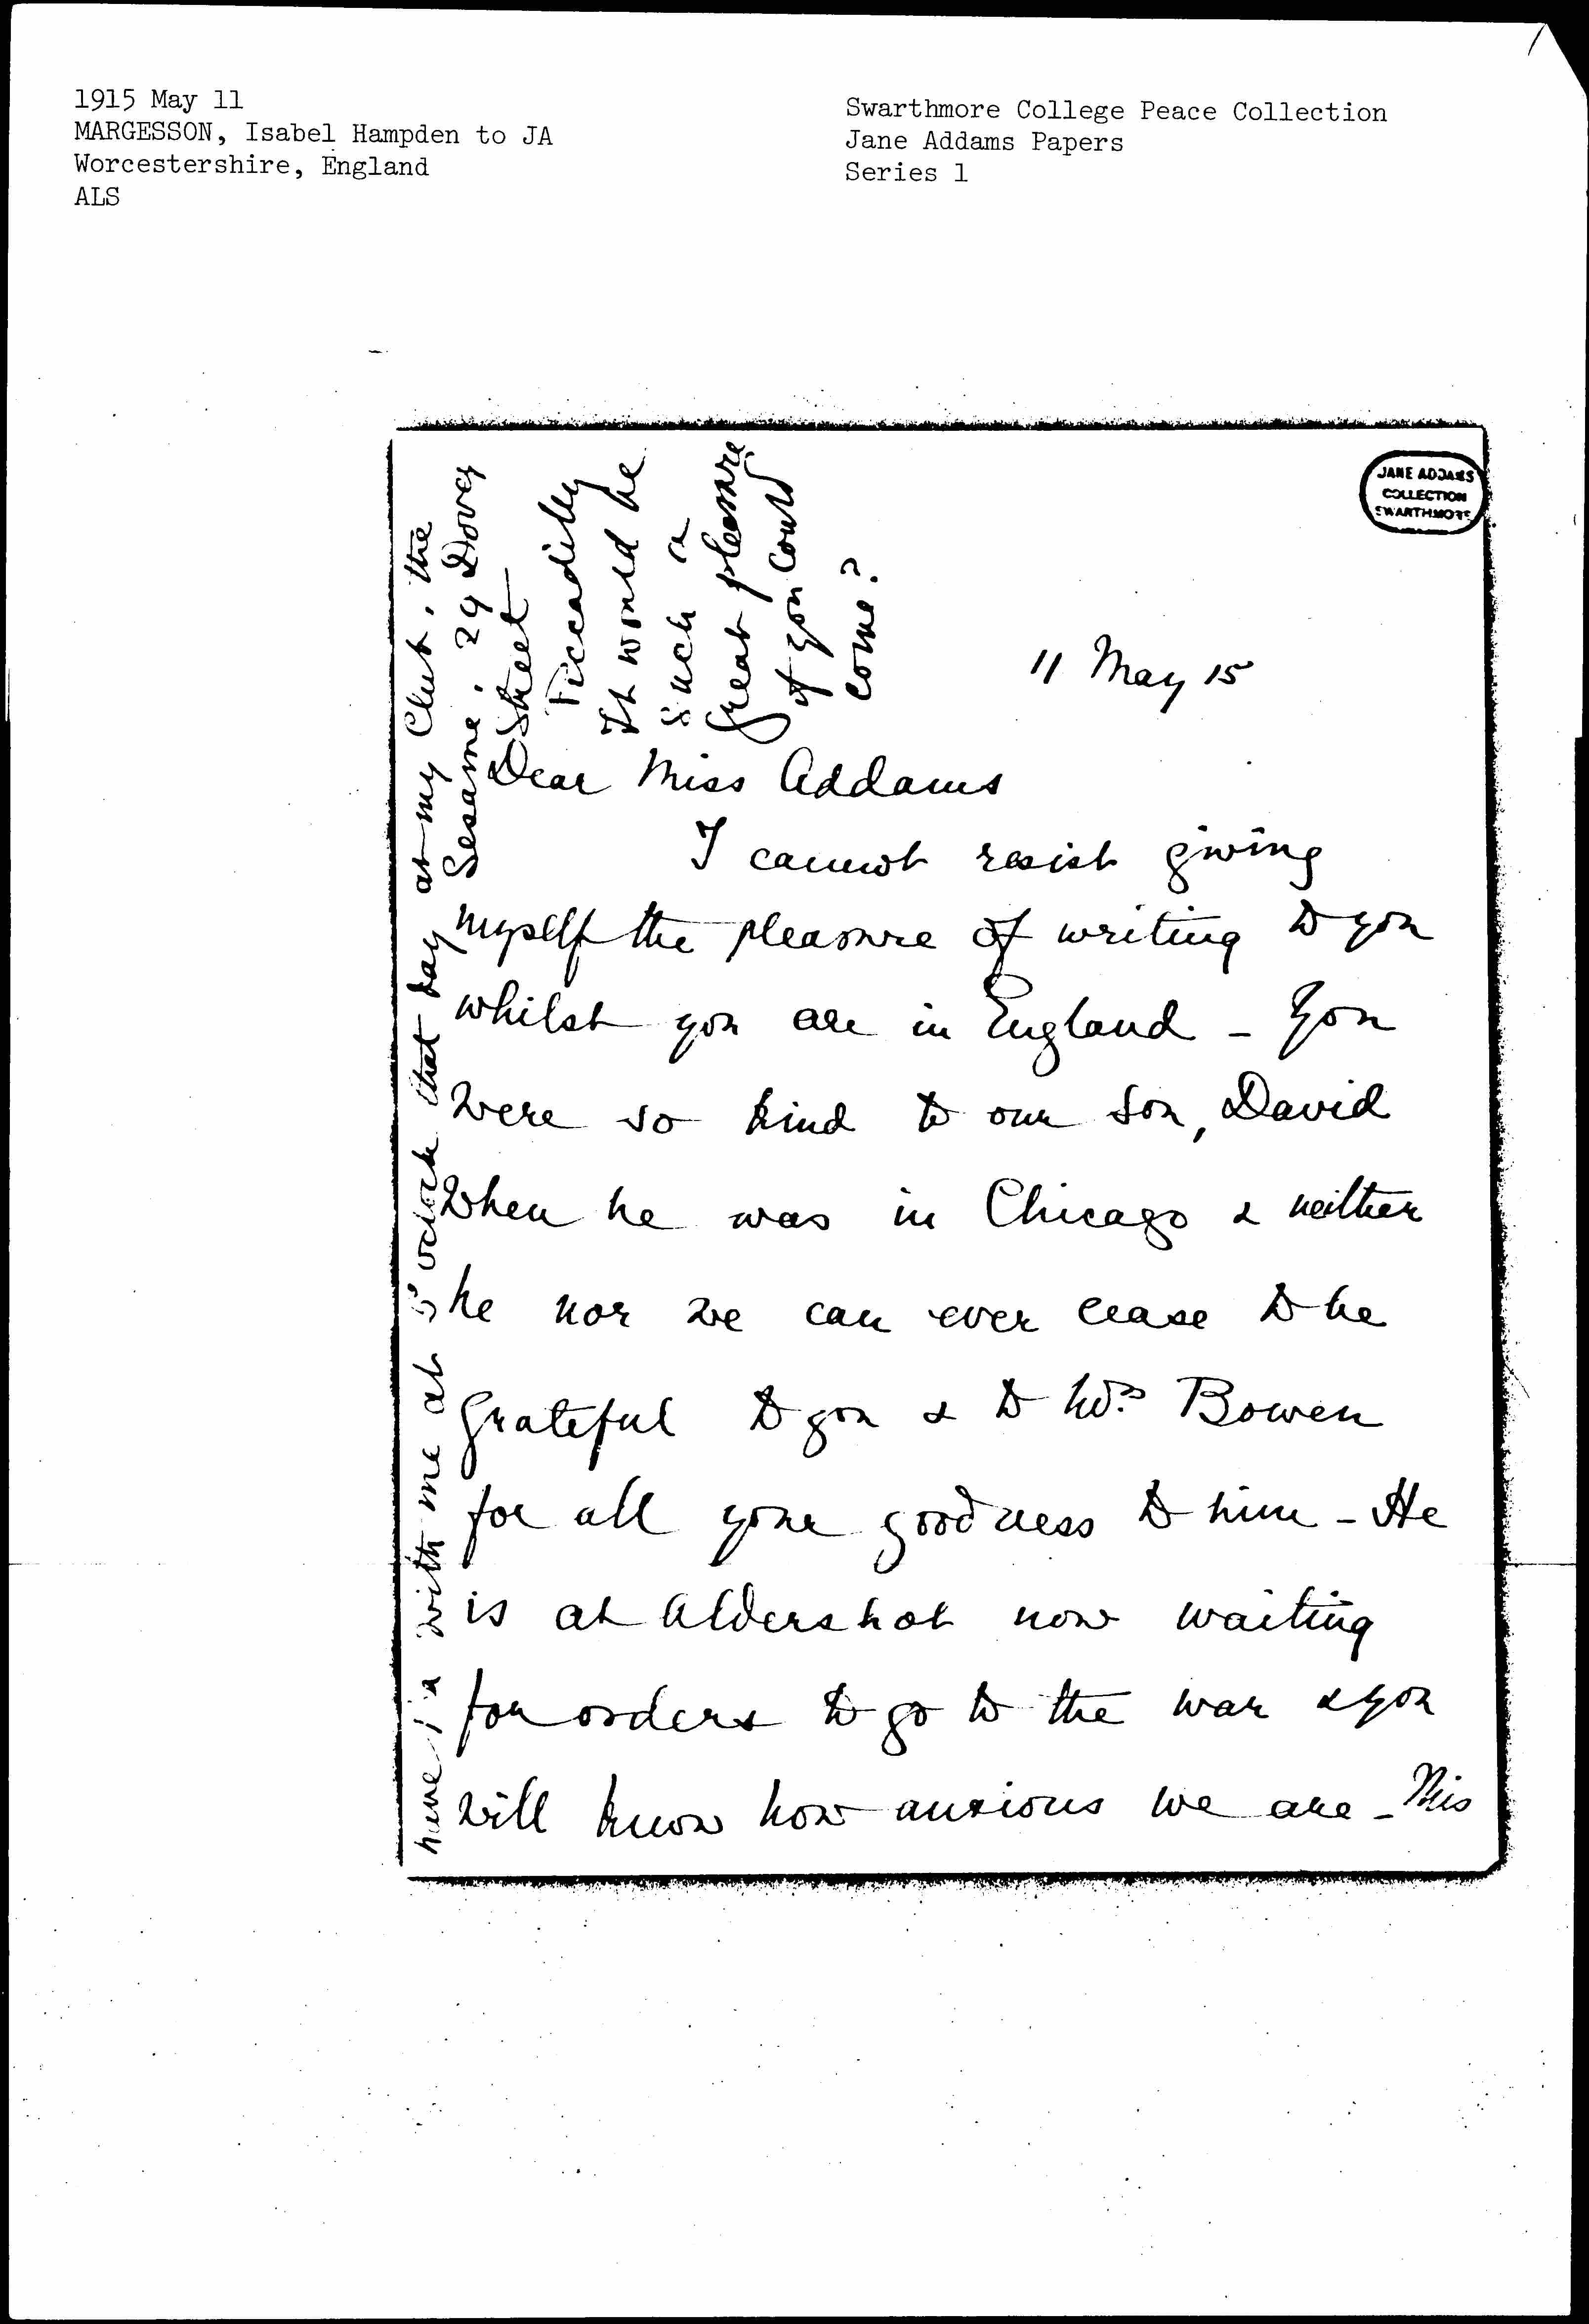 1915 May 11
MARGESSON, Isabel Hampden to JA
Worcestershire, England
ALS
Swarthmore College Peace Collection
Jane Addams Papers
Series 1
JANE ADDAMS
COLLECTION
SWARTHMORE
11 May 15
Dear Miss Addams
I cannot resist giving
myself the pleasure of writing to you
whilst you are in England - You
were so kind to our son, David
when he was in Chicago & neither
he nor we can ever cease to be
grateful to you & to Mrs Bowen
for all your goodness to him - He
is at Aldershot now waiting
for orders to go to the war & you
will know how anxious we are - This
have with me at 5 o'clock that day at my Club, the
Sesame. 29 Dover
Street
Piccadilly
It would be
such a
great pleasure
if you could
come?